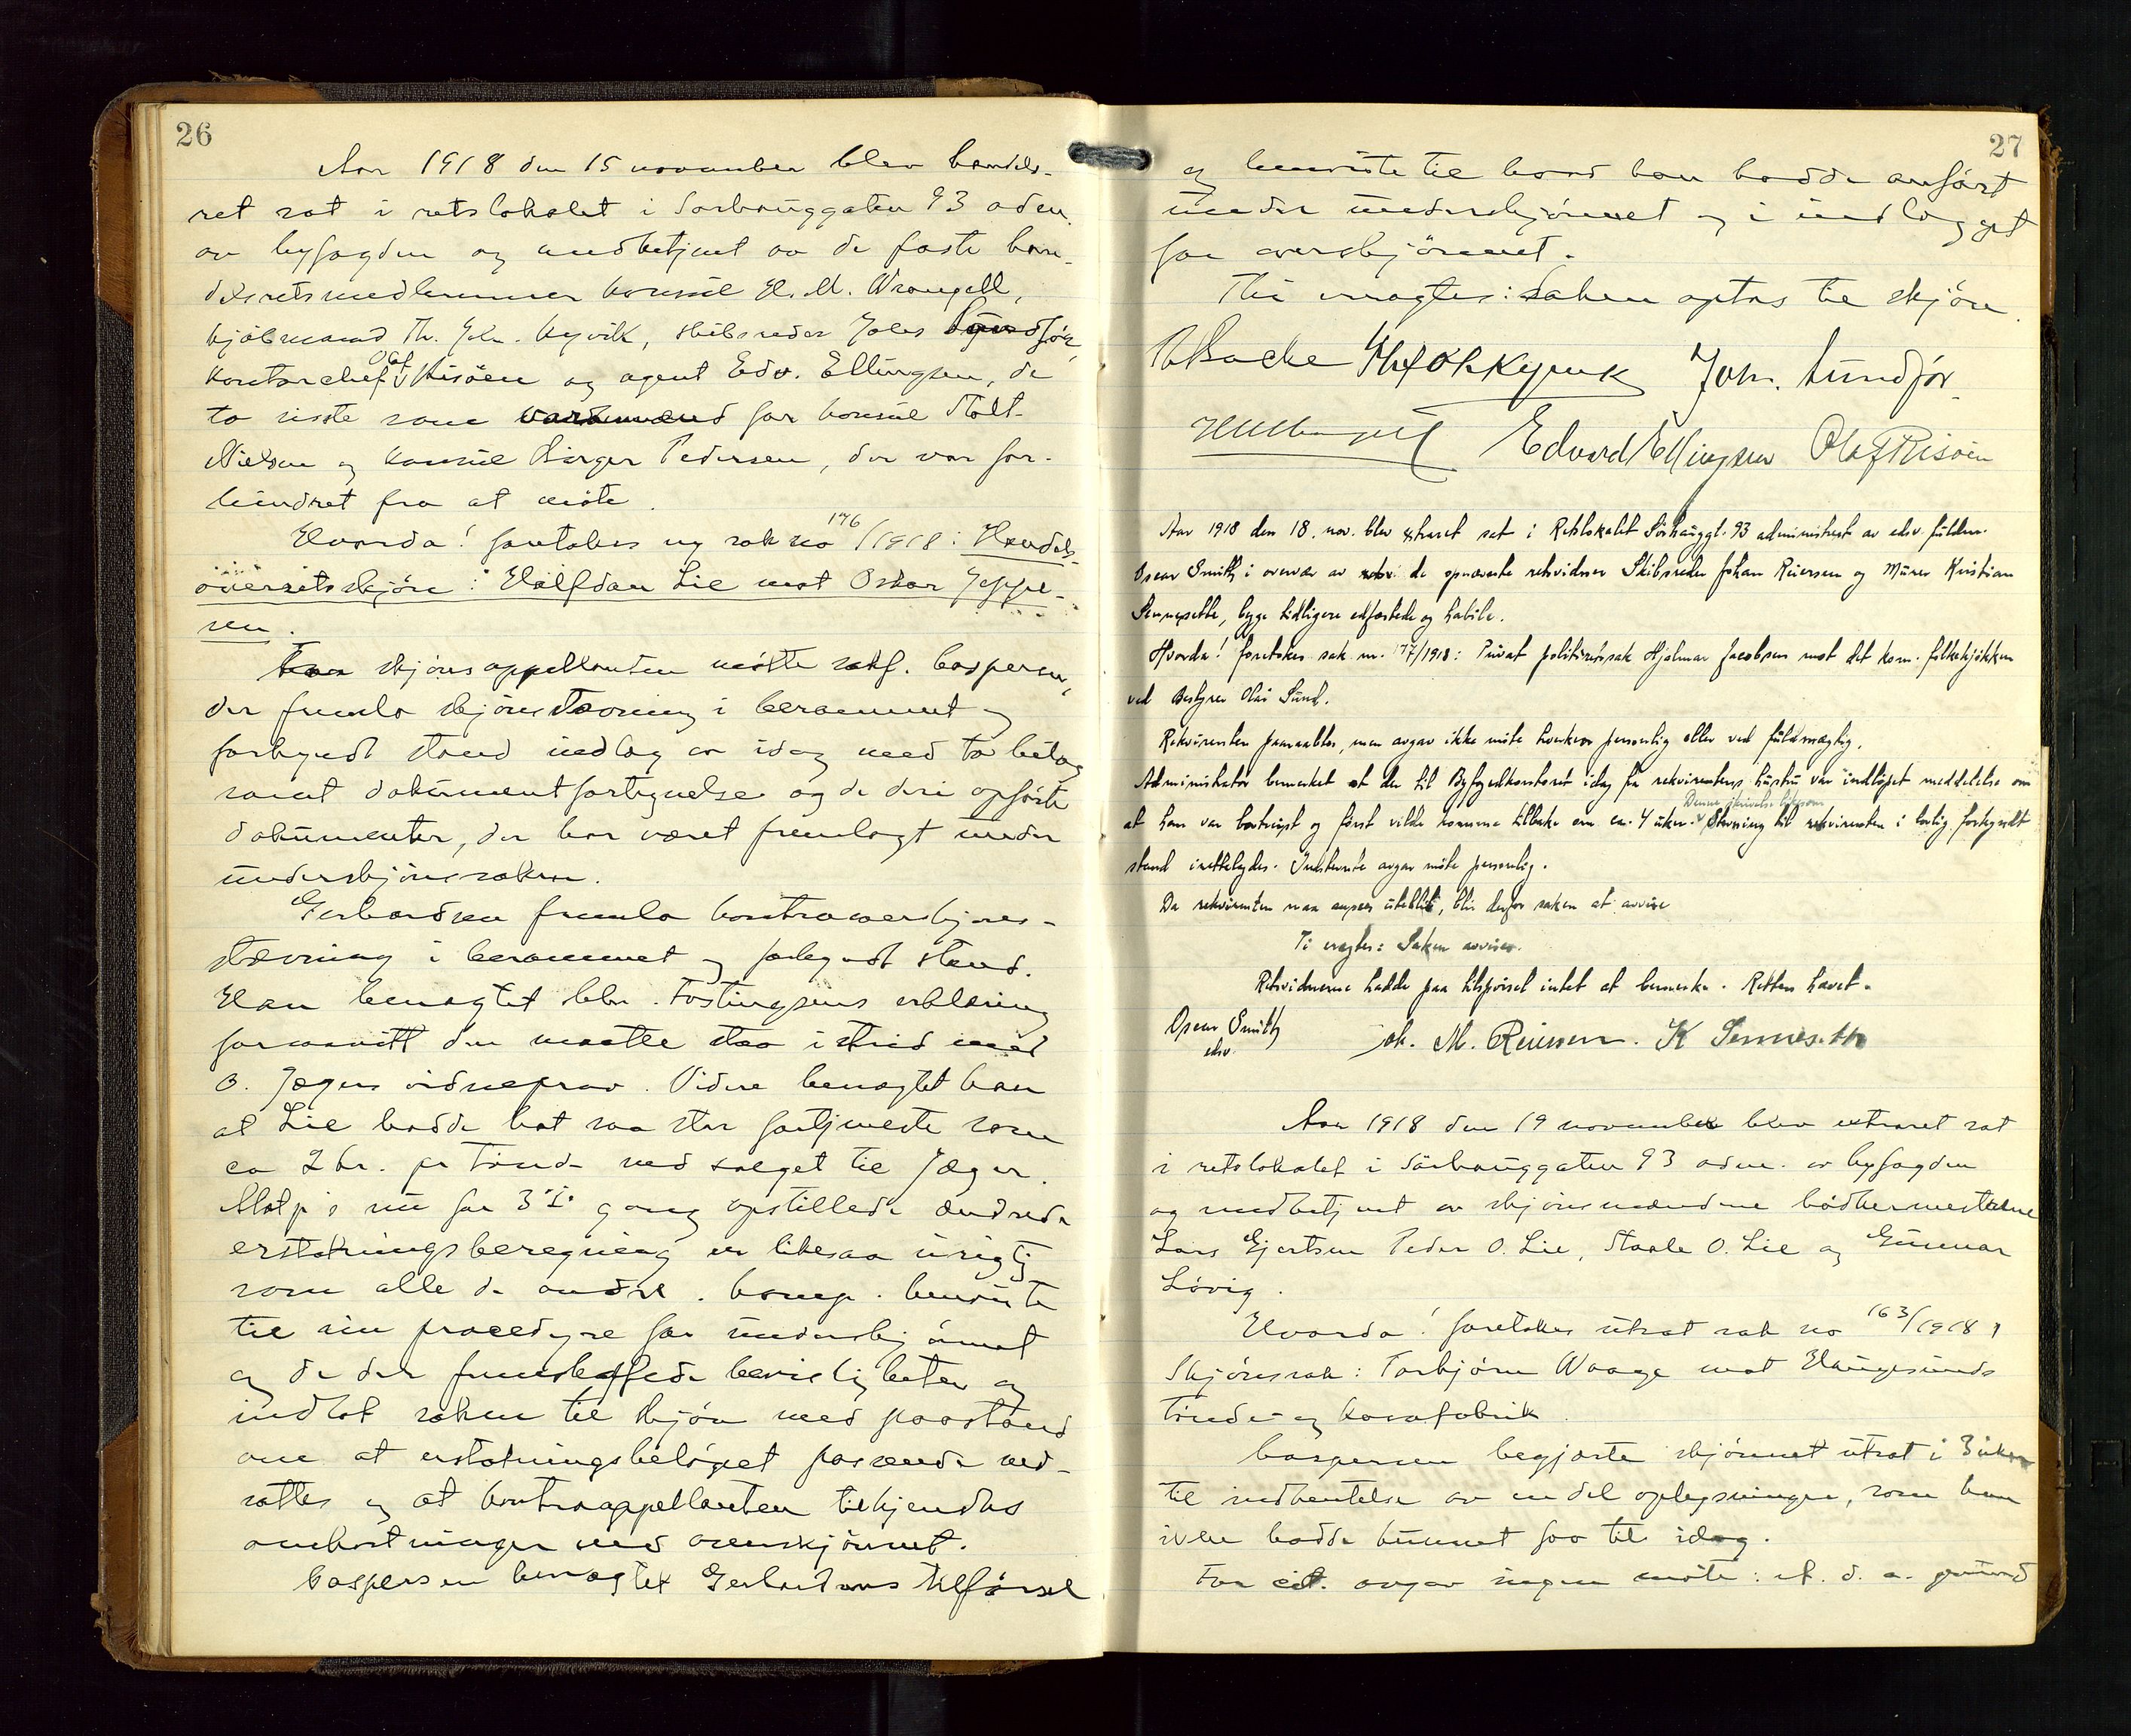 26
Aar 1918 den 15 november blev handels-
ret sat i retslokalet i Sørhauggaten 93 adm.
av byfogden og medbetjent av de faste han-
delsretsmedlemmer konsul H. M. Wrangell,
kjøbmand Th. Joh. Kyvik, skibsreder Johs Sundfør
kontorchef Olaf Risøen og agent Edv. Ellingsen, de
to siste som varamænd for konsul Stolt-
Nielsen og konsul Birger Pedersen, der var for-
hindret fra at møte.
Hvorda! foretokes ny sak no 176/1918: Handels-
overretsskjøn: Halfdan Lie mot Oskar Jeppe-
sen.
For skjønsappellanten møtte sakf. Caspersen,
der fremla skjønsstævning i berammet og
forkyndt stand indlæg av idag med to bilag
samt dokumentfortegnelse og de deri opførte
dokumenter, der har været fremlagt under
underskjønssaken.
Gerhardsen fremla kontraoverskjøns-
stævning i berammet og forkyndt stand.
Han benegtet hr. Tostingsens erklæring
forsaavitt den maatte staa i strid med
O. Jægers vidneprov. Videre benegtet han
at Lie hadde hat saa stor fortjeneste som
ca 2 kr. pr tønde ved salget til Jæger.
Motp's nu for 3die gang opstillede ændrede
erstatningsberegning er likesaa urigtig
som alle de andre. Comp. henviste
til sin procedyre for underskjønnet
og de der fremskaffede bevisligheter og
indlot saken til skjøn med paastand
om at erstatningsbeløpet passende ned-
sattes og at kontraappellanten tilkjendtes
omkostninger ved overskjønnet.
Caspersen benegtet Gerhardsens tilførsel
27
og henviste til hvad han hadde anført
under underskjønnet og i indlægget
for overskjønnet.
Thi eragtes: Saken optas til skjøn.
Joh. Sundfør
Edvard Ellingsen Olaf Risøen
Aar 1918 den 18. nov. blev extraret sat i Retslokalet Sörhauggt. 93 administrert av edsv. fuldm.
Oscar Smith i overvær av de opnævnte retsvidner Skibsreder Johan Reiersen og Murer Kristian
Sennesetth, begge tidligere edfæstede og habile.
Hvorda! foretokes sak nr. 177/1918: Privat politiretssak Hjalmar Jacobsen mot det kom. folkekjøkken
ved Bestyrer Olai Sund.
Rekvirenten paaraabtes, men avgav ikke møte hverken personlig eller ved fuldmægtig.
Administrator bemerket at der til Byfogedkontoret idag fra rekvirentens hustru var indløpet meddelelse om
at han var bortreist og først vilde komme tilbake om ca. 4 uker. Denne skrivelse likesom Stevning til rekvirenten i lovlig forkyndt
stand irettelægdes. Indstevnte avgav møte personlig.
Da rekvirenten maa ansees uteblit, blir derfor saken at avvise
Ti eragtes: Saken avvises.
Retsvidnerne hadde paa tilspørsel intet at bemerke. Retten hævet.
Oscar Smith
edsv.
Joh. M. Reiersen. K Sennesetth
Aar 1918 den 19 november blev extraret sat
i retslokalet i Sörhauggaten 93 adm. av byfogden
og medbetjent av skjønsmændene bødkermesterne
Lars Gjertsen Peder O. Lie, Staale O. Lie og Gunnar
Løvig.
Hvorda! foretokes utsat sak no 163/1918,
Skjønssak: Torbjørn Waage mot Haugesunds
tønde- og kassefabrik.
Caspersen begjærte skjønnet utsat i 3 uker
til indhentelse av en del oplysninger, som han
ikke hadde kunnet faa til idag.
For cit. avgav ingen møte: ef. d. a. grund